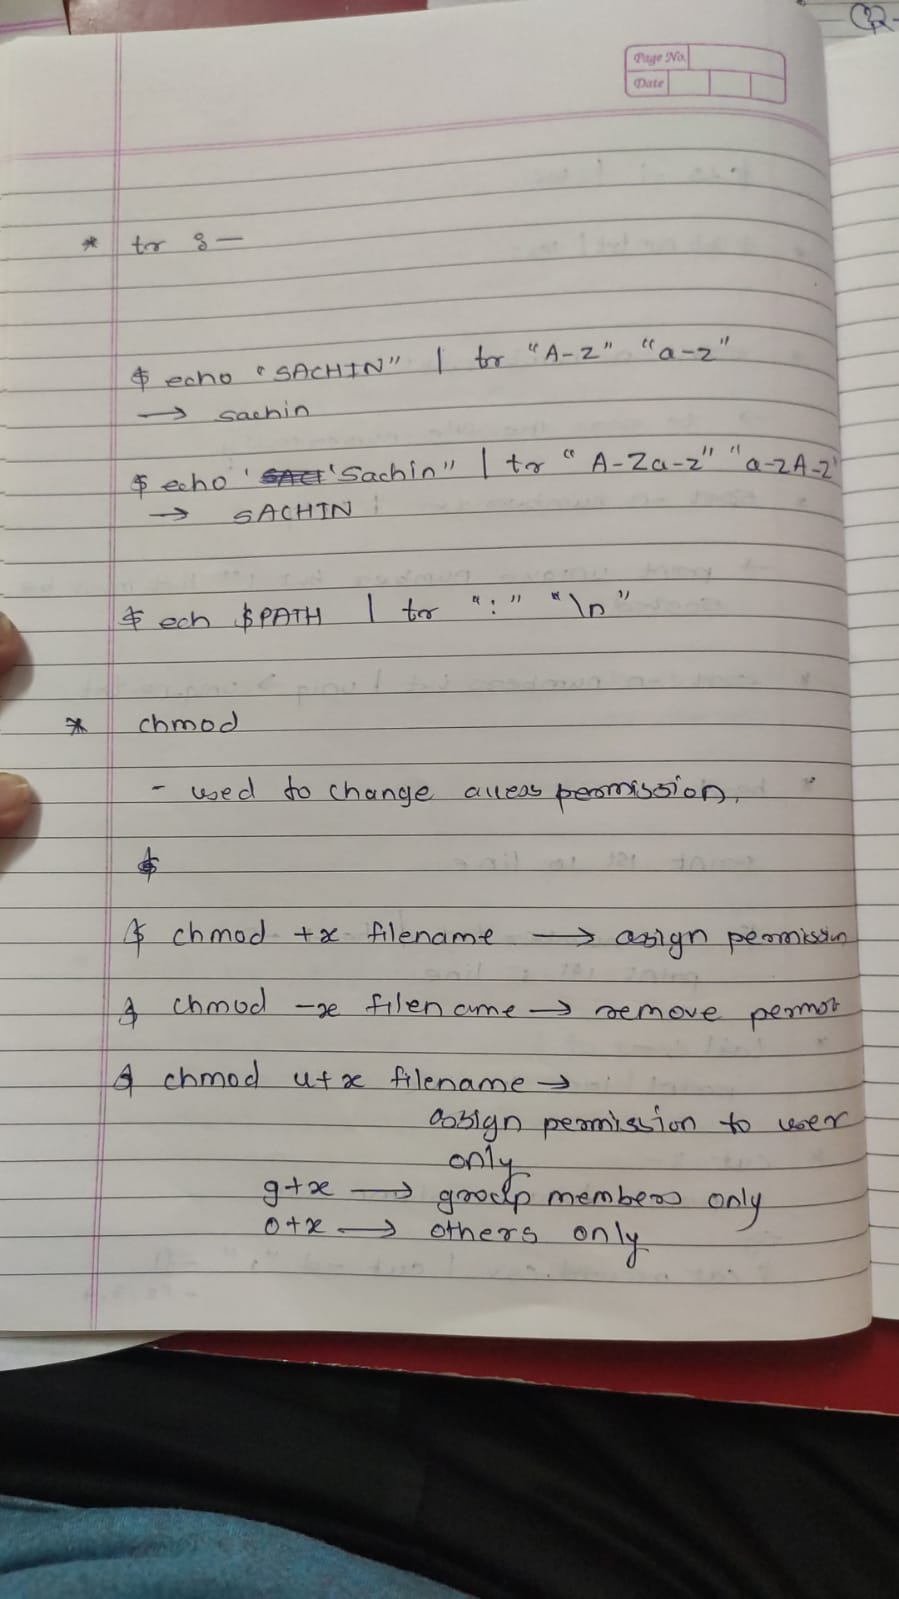 Page No.
Date
* tr :-
$ echo "SACHIN" | tr "A-Z" "a-z"
→ sachin
$ echo ' 'Sachin" | tr "A-Za-z" "a-zA-Z'
→ SACHIN
$ ech $PATH | tr ":" "\n"
* chmod
- used to change access permission.
$
$ chmod +x filename → assign permission
$ chmod -x filename → remove
$ chmod u+x filename →
assign permission to user
only
g+x → group members only
o+x → others only